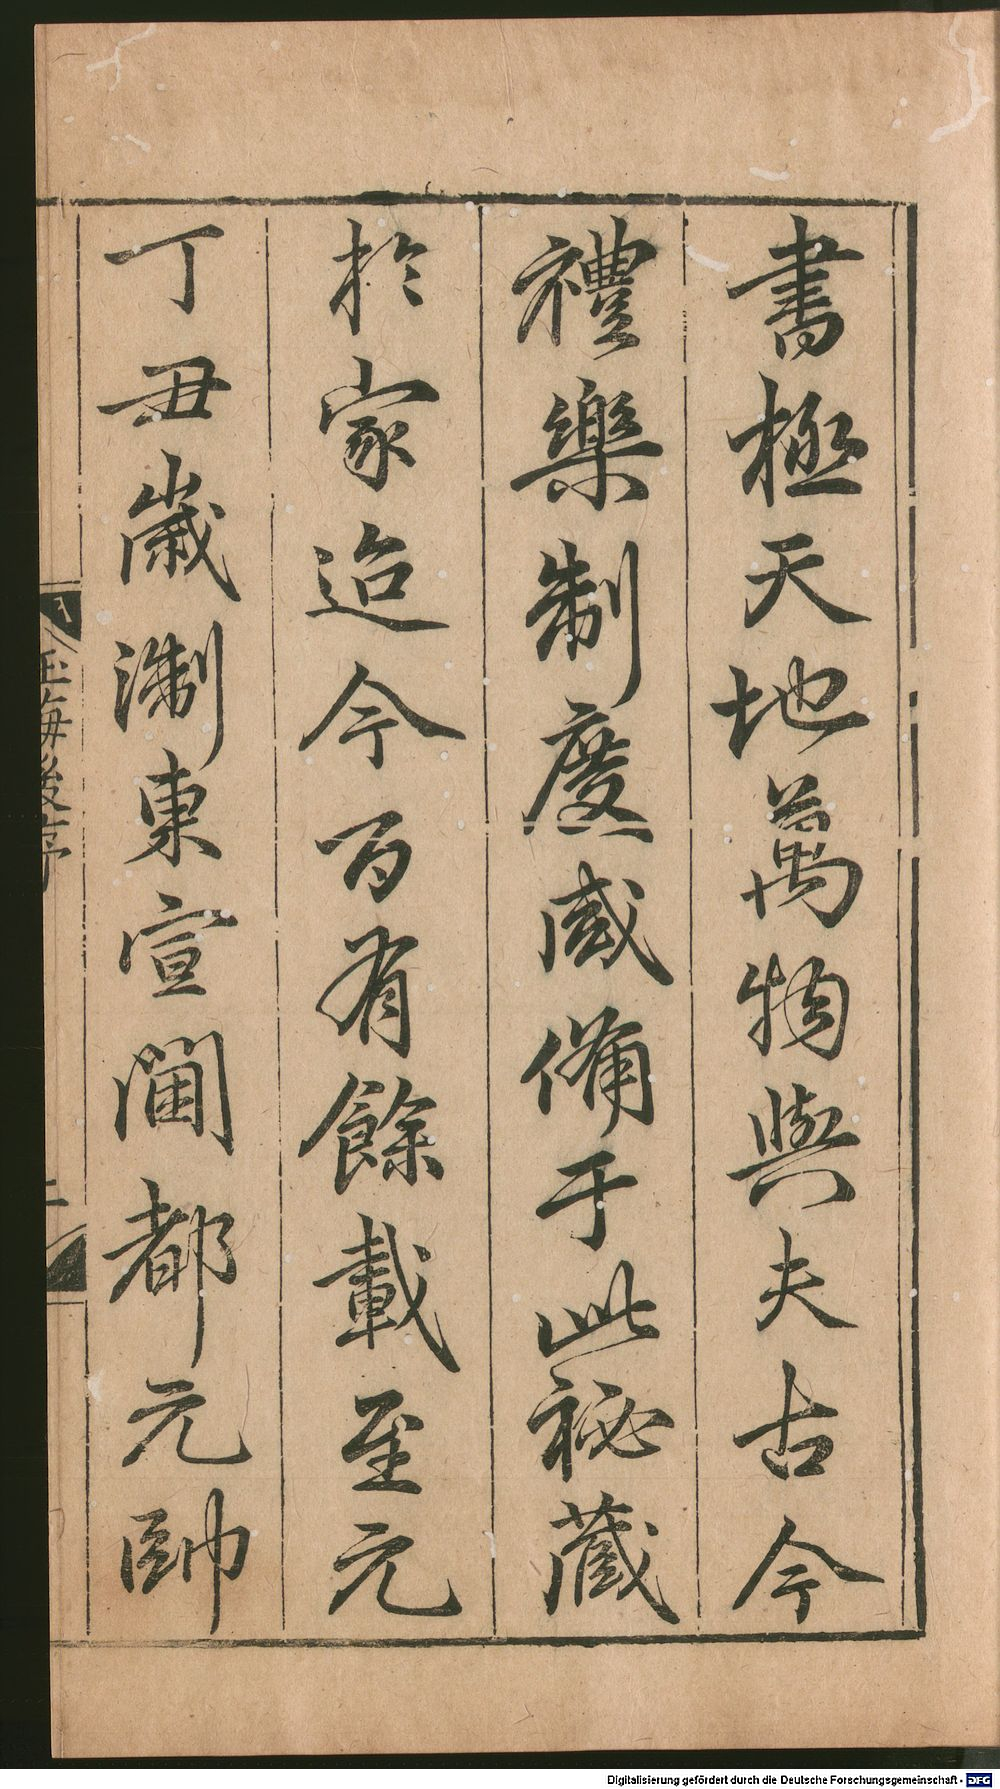 書極天地萬物與夫古今
禮樂制度咸備于此祕藏
於家迨今百有餘載至元
丁丑歲浙東宣閫都元帥
玉海後序
二
Digitalisierung gefördert durch die Deutsche Forschungsgemeinschaft - DFG